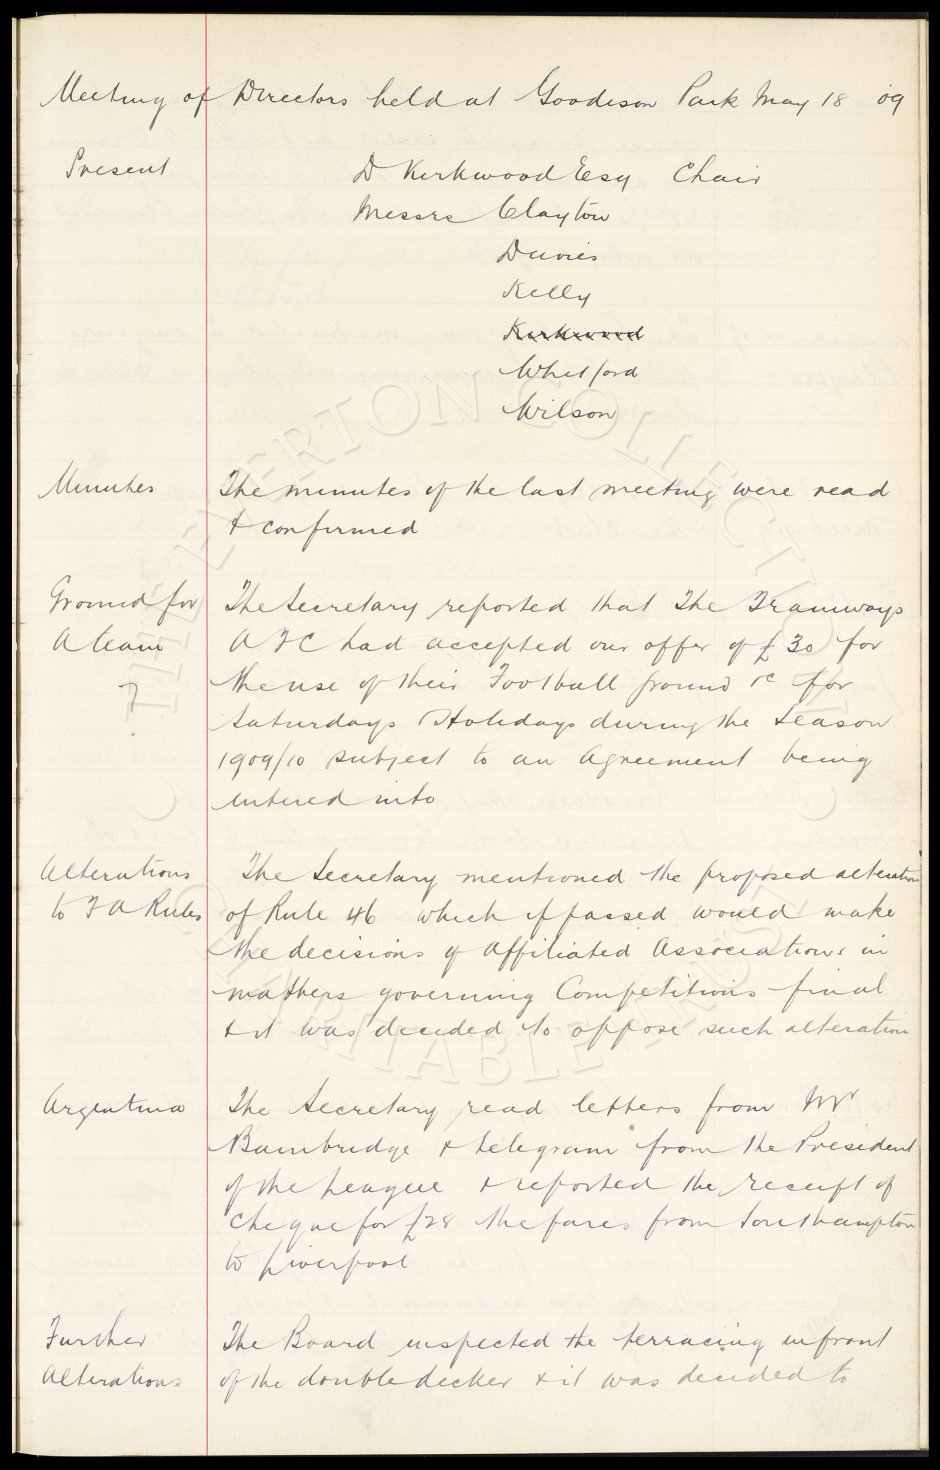 Meeting of Directors held at Goodison Park May 18 09
Present D Kirkwood Esq Chair
Messrs Clayton
Davies
Kelly
Kirkwood
Whitford
Wilson
Minutes The minutes of the last meeting were read
& confirmed
Ground for The Secretary reported that The Tramways
A team A F C had accepted our offer of £30 for
the use of their Football ground &c for
Saturdays & Holidays during the Season
1909/10 subject to an Agreement being
entered into
Alterations The Secretary mentioned the proposed alteration
to F A Rules of Rule 46 which if passed would make
the decisions of Affiliated Associations in
matters governing Competitions final
& it was decided to oppose such alteration
Argentina The Secretary read letters from Mr
Bambridge & telegram from the President
of the League & reported the receipt of
cheque for £28 the fares from Southampton
to Liverpool
Further The Board inspected the terracing in front
Alterations of the double decker & it was decided to
THE EVERTON COLLECTION
CHARITABLE TRUST